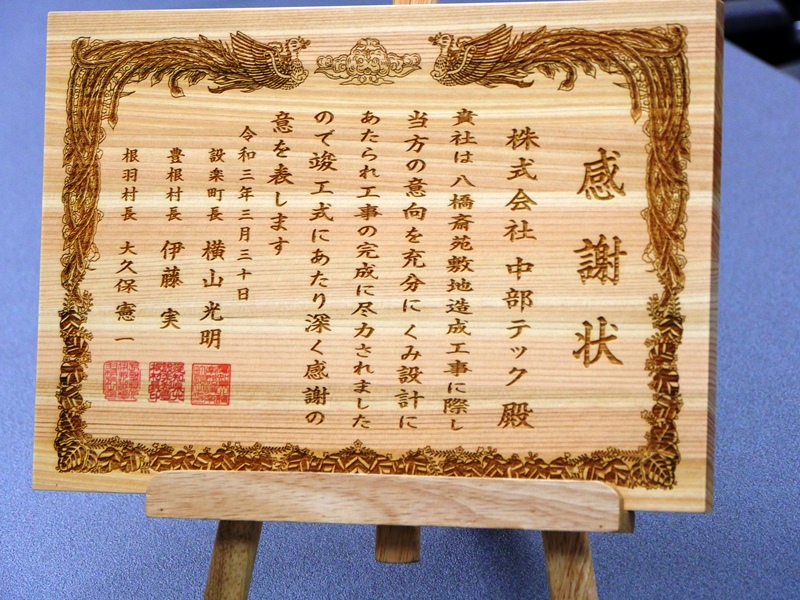 感謝状
株式会社 中部テック 殿
貴社は八橋斎苑敷地造成工事に際し
当方の意向を充分にくみ設計に
あたられ工事の完成に尽力されました
ので竣工式にあたり深く感謝の
意を表します
令和三年三月三十日
設楽町長 横山光明
豊根村長 伊藤 実
根羽村長 大久保憲一